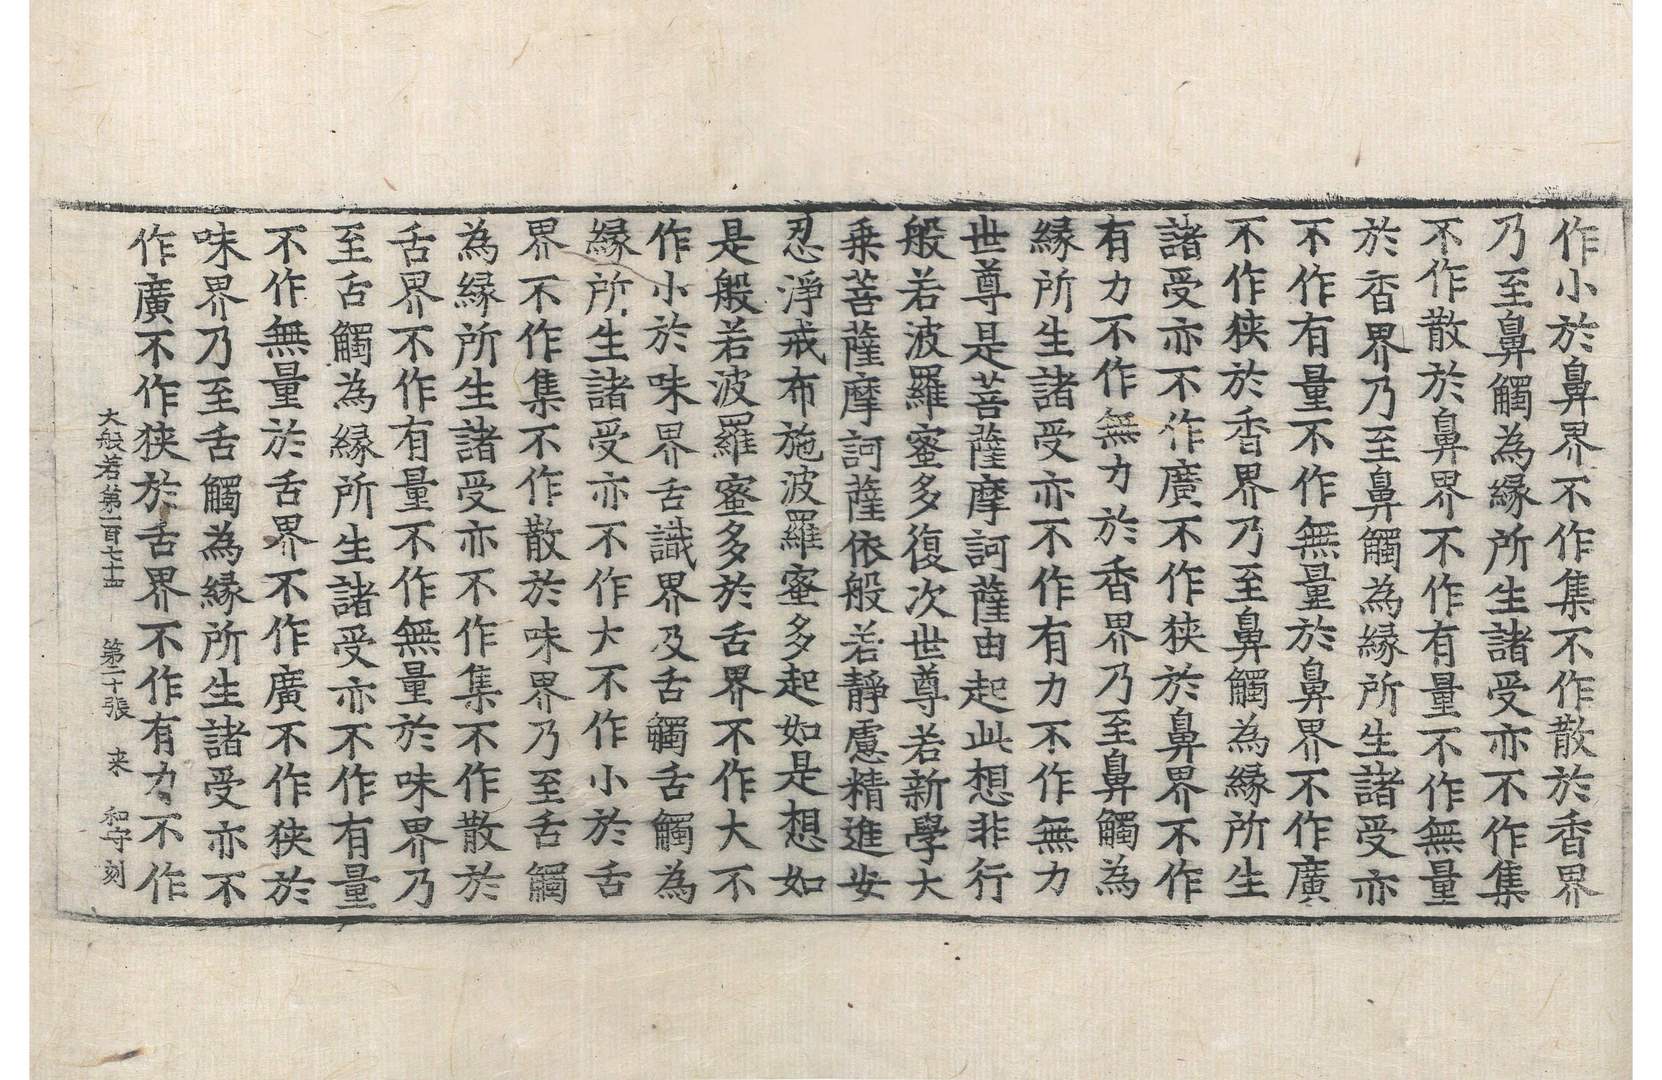 作小於鼻界不作集不作散於香界
乃至鼻觸為縁所生諸受亦不作集
不作散於鼻界不作有量不作無量
於香界乃至鼻觸為縁所生諸受亦
不作有量不作無量於鼻界不作廣
不作狭於香界乃至鼻觸為縁所生
諸受亦不作廣不作狭於鼻界不作
有力不作無力於香界乃至鼻觸為
縁所生諸受亦不作有力不作無力
世尊是菩薩摩訶薩由起此想非行
般若波羅蜜多復次世尊若新學大
乗菩薩摩訶薩依般若靜慮精進安
忍淨戒布施波羅蜜多起如是想如
是般若波羅蜜多於舌界不作大不
作小於味界舌識界及舌觸舌觸為
縁所生諸受亦不作大不作小於舌
界不作集不作散於味界乃至舌觸
為縁所生諸受亦不作集不作散於
舌界不作有量不作無量於味界乃
至舌觸為縁所生諸受亦不作有量
不作無量於舌界不作廣不作狭於
味界乃至舌觸為縁所生諸受亦不
作廣不作狭於舌界不作有力不作
大般若第一百七十四 第二十張 来 和守刻